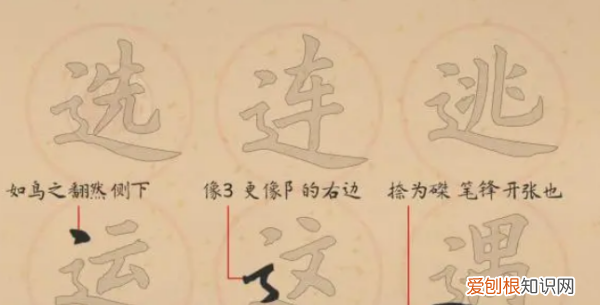 选 连 逃
如鸟之翻然侧下 像3更像阝的右边 捺为磔 笔锋开张也
运 这 遇
爱刨根知识网